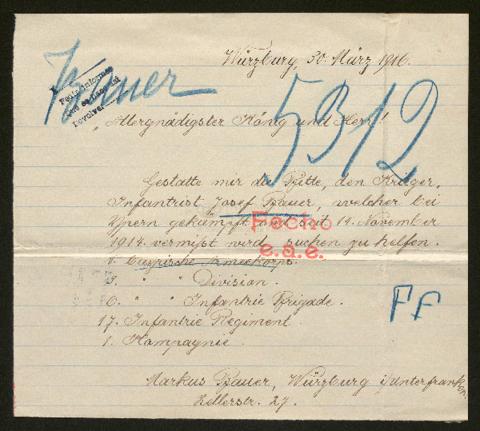 Würzburg, 30. März 1916.
Bauer
5312
Allergnädigster König und Herr!
Gestatte mir die Bitte, den Krieger,
Infantrist Josef Bauer, welcher bei
Ypern gekämpft und seit 14. November
1914 vermißt wird, suchen zu helfen.
Fecho
e.a.e.
1. Bayrische Armeekorps.
3. " " Division.
6. " " Infantrie Brigade.
FF
17. Infantrie Regiment
1. Kompagnie.
Markus Bauer, Würzburg i/Unterfranken
Zellerstr. 27.